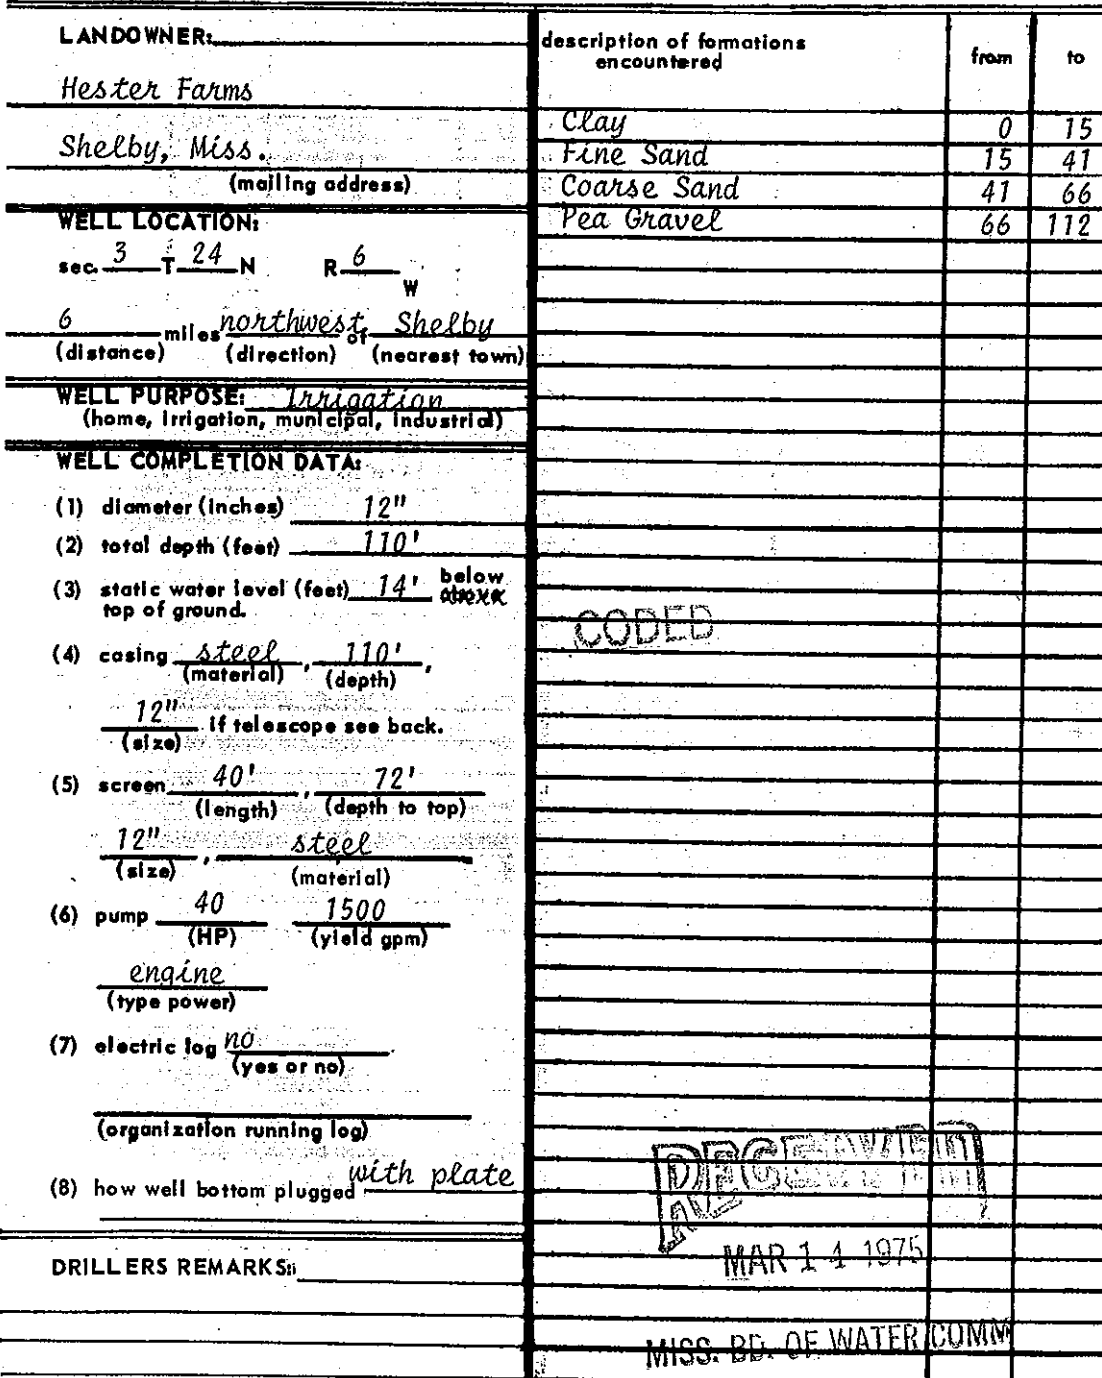 LANDOWNER:
Hester Farms
Shelby, Miss.
(mailing address)
WELL LOCATION:
sec. 3 T 24 N R 6 W
6 miles northwest of Shelby
(distance) (direction) (nearest town)
WELL PURPOSE: Irrigation
(home, irrigation, municipal, industrial)
WELL COMPLETION DATA:
(1) diameter (inches) 12"
(2) total depth (feet) 110'
(3) static water level (feet) 14' below above
top of ground.
(4) casing steel, 110',
(material) (depth)
12" if telescope see back.
(size)
(5) screen 40', 72'
(length) (depth to top)
12", steel
(size) (material)
(6) pump 40 1500
(HP) (yield gpm)
engine
(type power)
(7) electric log no
(yes or no)
(organization running log)
(8) how well bottom plugged with plate
DRILLERS REMARKS:
description of formations encountered from to
Clay 0 15
Fine Sand 15 41
Coarse Sand 41 66
Pea Gravel 66 112
CODED
RECEIVED
MAR 14 1975
MISS. BD. OF WATER COMM